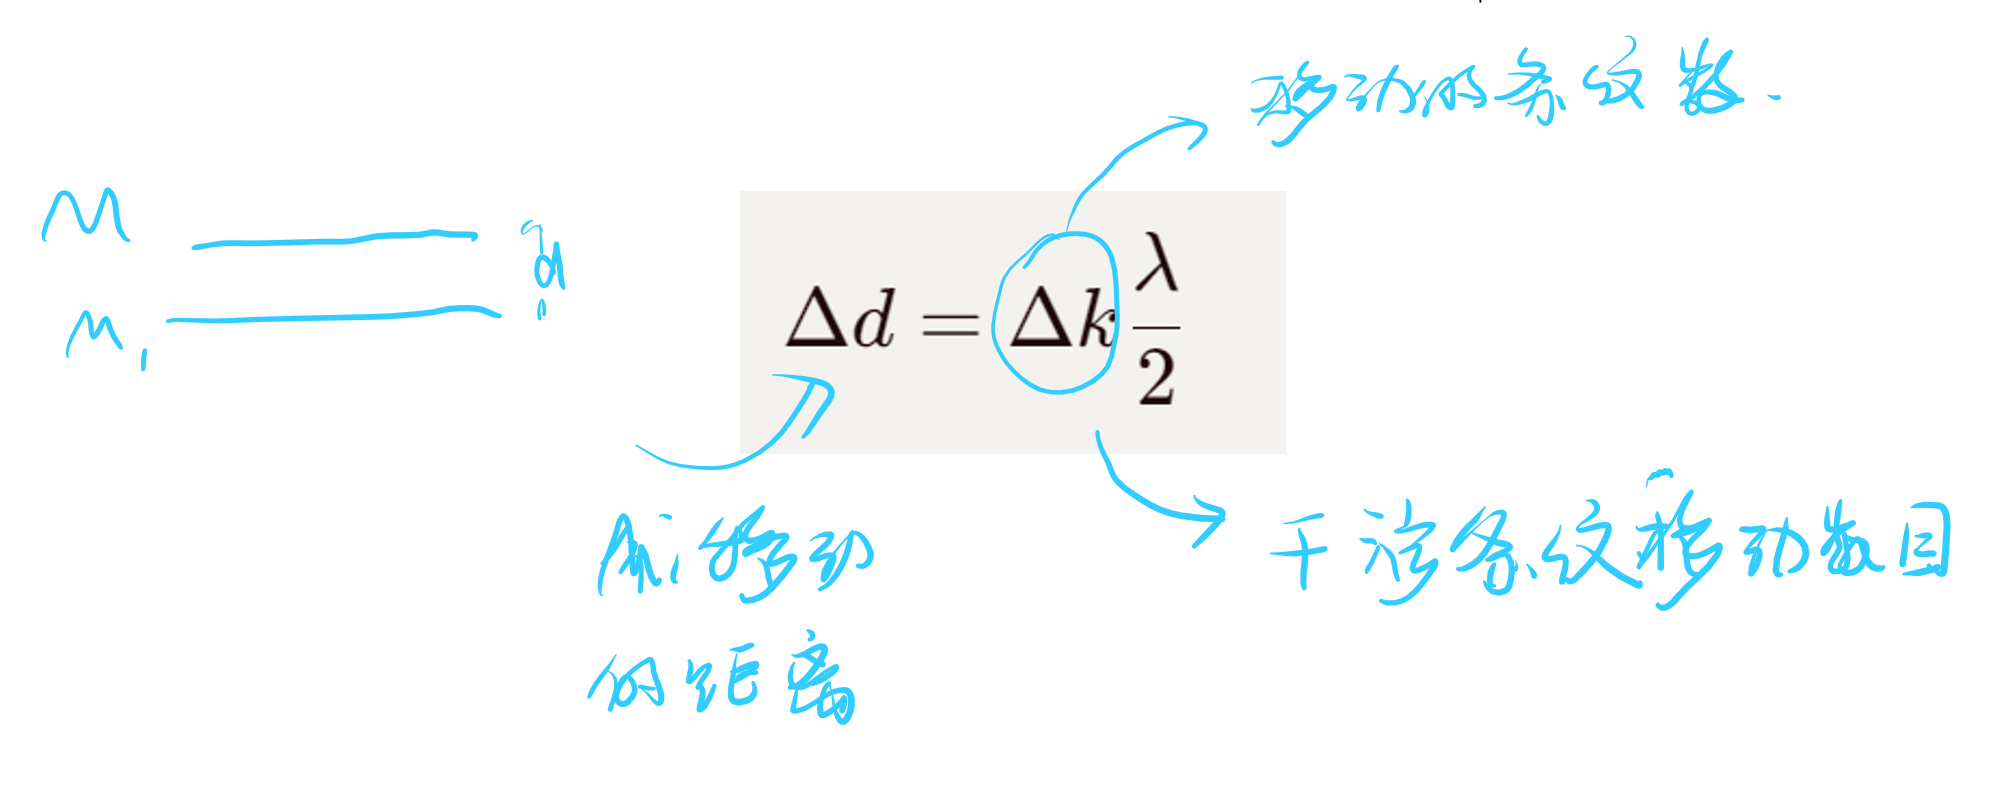 移动的条纹数.
M
M₁
d
Δd = Δk λ/2
M₁移动
的距离
干涉条纹移动数目